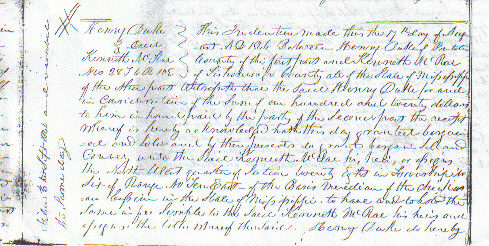 Henry Duke This Indenture made this the 17th day of Aug
& Deed ust A.D. 1846 Between Henry Duke of
Kenneth McRae County of the first part and Kenneth McRae
NW 28 T 6 R 10 E of County all of the State of Mississippi
of the other part Witnesseth that the said Henry Duke for and
in Consideration of the sum of one hundred and twenty dollars
to him in hand paid by the party of the second part the receipt
whereof is hereby acknowledged hath this day granted bargain
ed and sold and by these presents do grant bargain sell and
Convey unto the said Kenneth McRae his heirs or assigns
the North West quarter of Section twenty eight in Township No
Six of Range No Ten East of the Basis Meridian of the
in the State of Mississippi to have and to hold the
same in fee simple to the said Kenneth McRae his heirs and
assigns the said Henry Duke do hereby
the same day